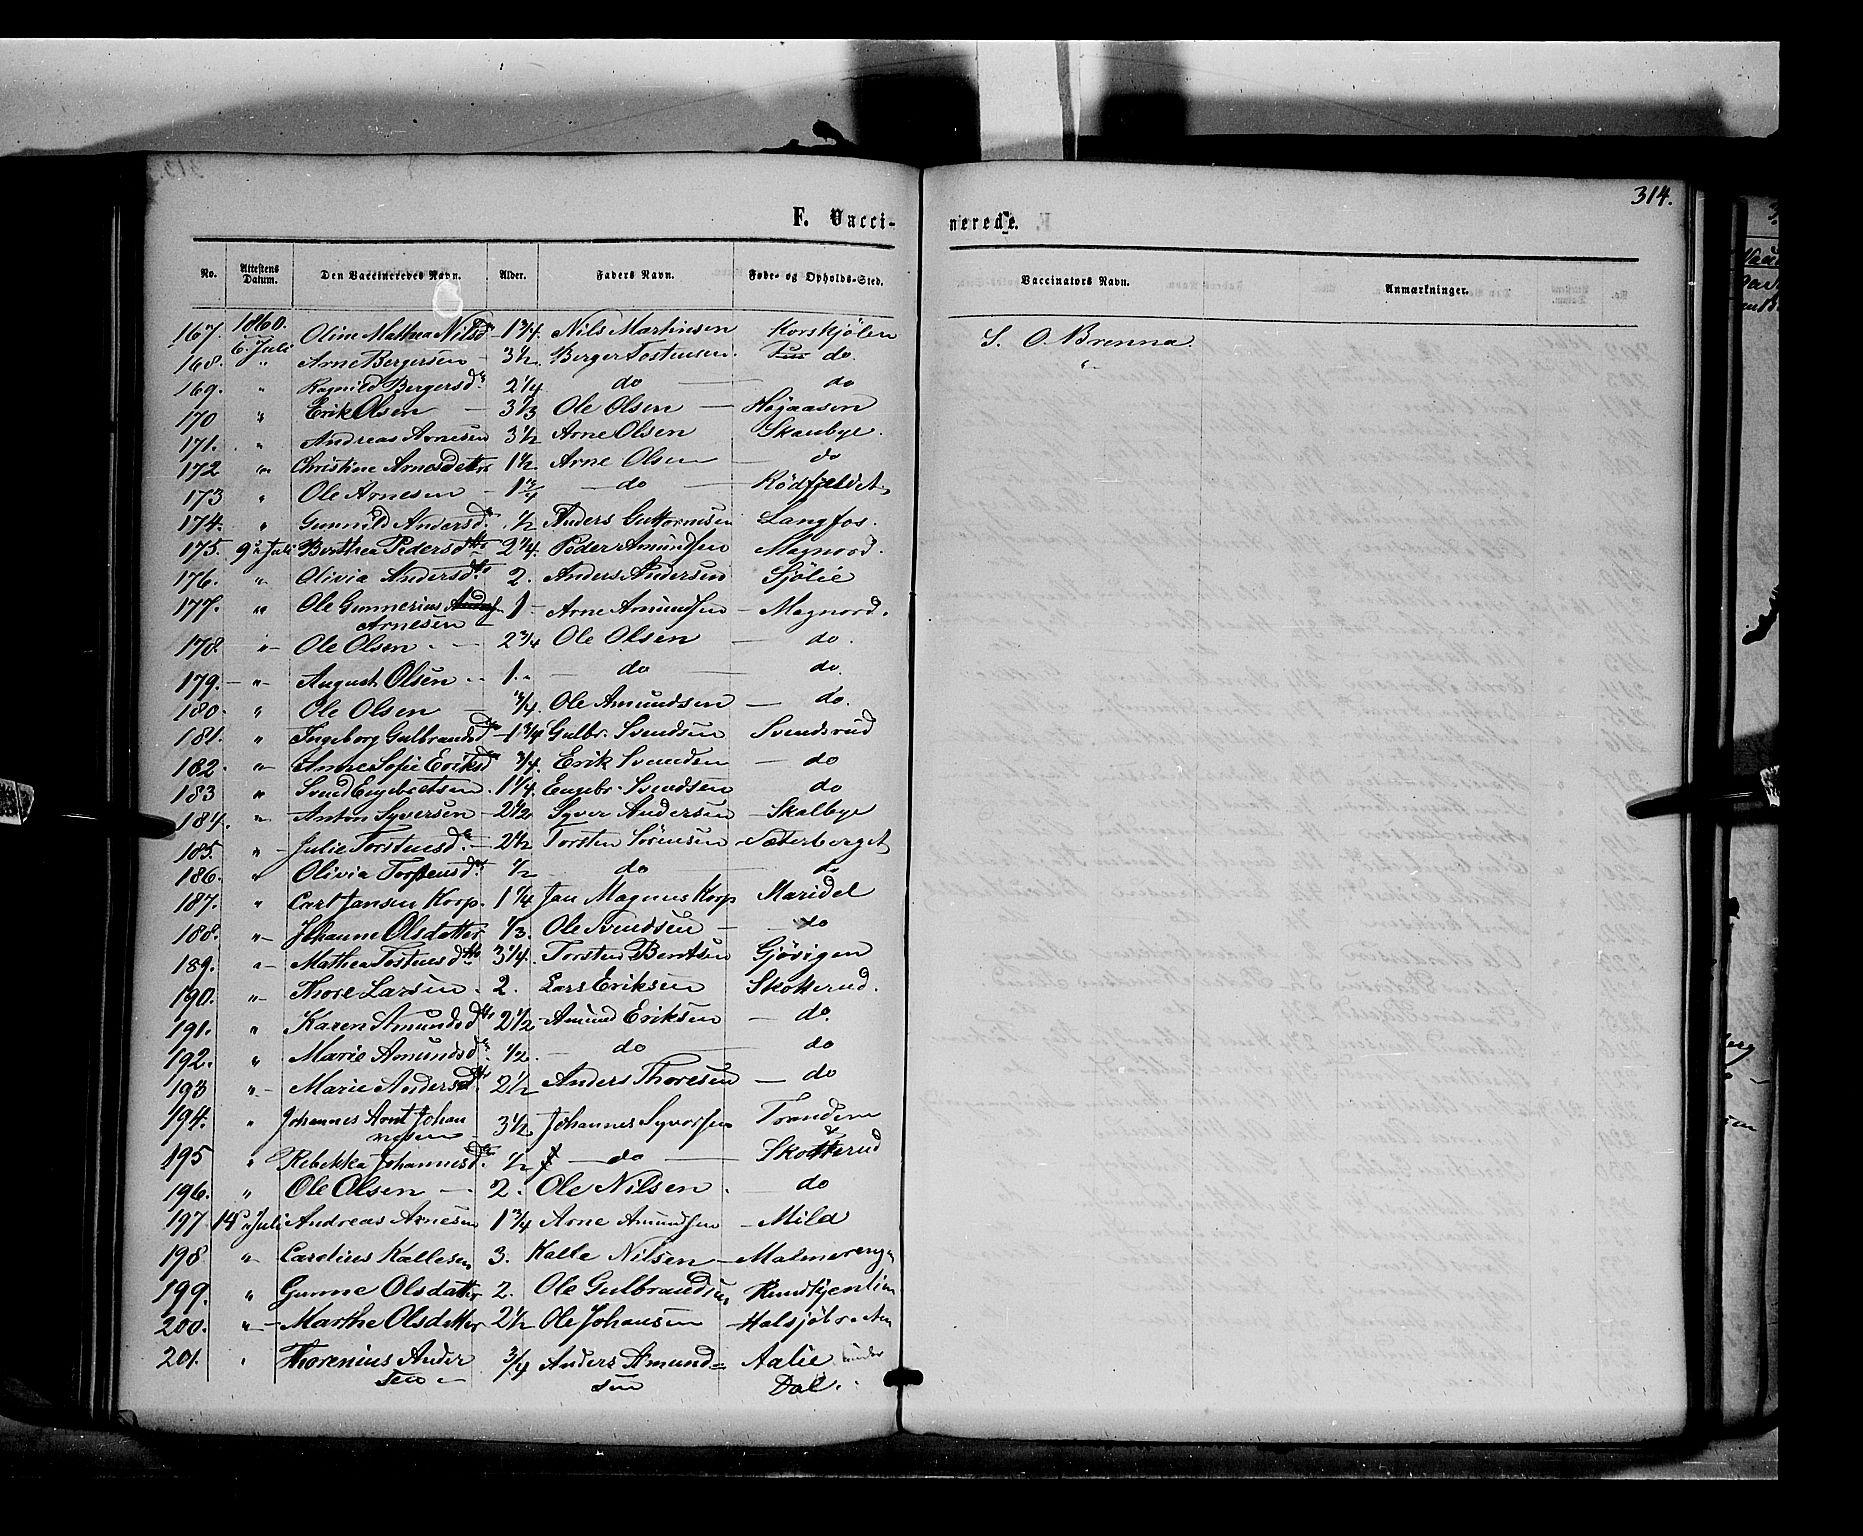 314.
F. Vacci- nerede.
No. Attestens Datum. Den Vaccineredes Navn. Alder. Faders Navn. Føde- og Opholds-Sted. Vaccinators Navn. Anmærkninger.
1860.
167. 6 Juli Oline Mathea Nilsd 1 3/4. Nils Martinsen Korskjølen S. O. Brenna
168. " Arne Bergersen – 3 1/2 Berger Tostensen. do. "
169. " Ragnild Bergersd. 2 1/4 do do
170 " Erik Olsen – 3 1/3 Ole Olsen – Højaasen
171. " Andreas Arnesen 3 1/2 Arne Olsen Skanbye.
172 " Christine Arnesdetter 1 1/2 Arne Olsen do
173 " Ole Arnesen – 1 3/4 – do – Rödfjeldet
174. " Gunnild Andersd. 1/2 Anders Guttormsen Langfos.
175. 9de Juli Berthea Pedersdtr 2 1/4. Peder Amundsen Magnord.
176. " Olivia Andersdtr 2. Anders Andersen Sjölie
177. " Ole Gunnerius Anders 1 – Arne Amundsen – Magnord.
Arnesen
178 " Ole Olsen – 2 3/4 Ole Olsen – do.
179. – " – August Olsen 1. " – do – do.
180. " Ole Olsen – 3/4. Ole Amundsen – do.
181. " Ingeborg Gulbrandsd – 1 3/4 Gulbr. Svendsen Svendsrud
182. " Anne Sofie Eriksd 3/4. Erik Svendsen – do
183 " Svend Engebretsen. 1 1/4. Engebr. Svendsen do
184. " Anton Syversen – 2 1/2 Syver Andersen – Skalbye
185. " – Julie Torstensd. – 2 1/2 Torsten Sörensen – Sæterberget
186. " Olivia Torstensd. 1/2 – do do
187. " Carl Jansen Korp. 1 1/4 Jan Magnus Korp Maridel
188. " – Johanne Olsdatter 1/3. Ole Svendsen – do
189. " – Mathea Tostensdtr 3 1/4. Torsten Bentsen Gjövigen
190. " – Thore Larsen. 2. Lars Eriksen Skotterud.
191. " Karen Amundsd 2 1/2 – Amund Eriksen – do.
192. " Marie Amundsd. 1/2. – do do
193 " – Marie Andersd. 2 1/2 Anders Thoresen – do
194. " Johannes Arnt Johan 3 1/2 Johannes Syversen Trandem
nesen
195 " Rebekka Johannesd. 1/2 – do – Skotterud
196. " Ole Olsen – 2. Ole Nilsen. – do
197 14de Juli Andreas Arnesen 1 3/4 Arne Amundsen – Mild
198 " – Carelius Kallesen 3. Kalle Nilsen – Malmerengen
199. " Gunne Olsdatter 2. Ole Gulbrandsen
200. " – Marthe Olsdetter 2 1/2 Ole Johansen – Halsjöbraaten
201. " Thorenius Ander 3/4 Anders Amund= Aalie under
sen – sen Dal.